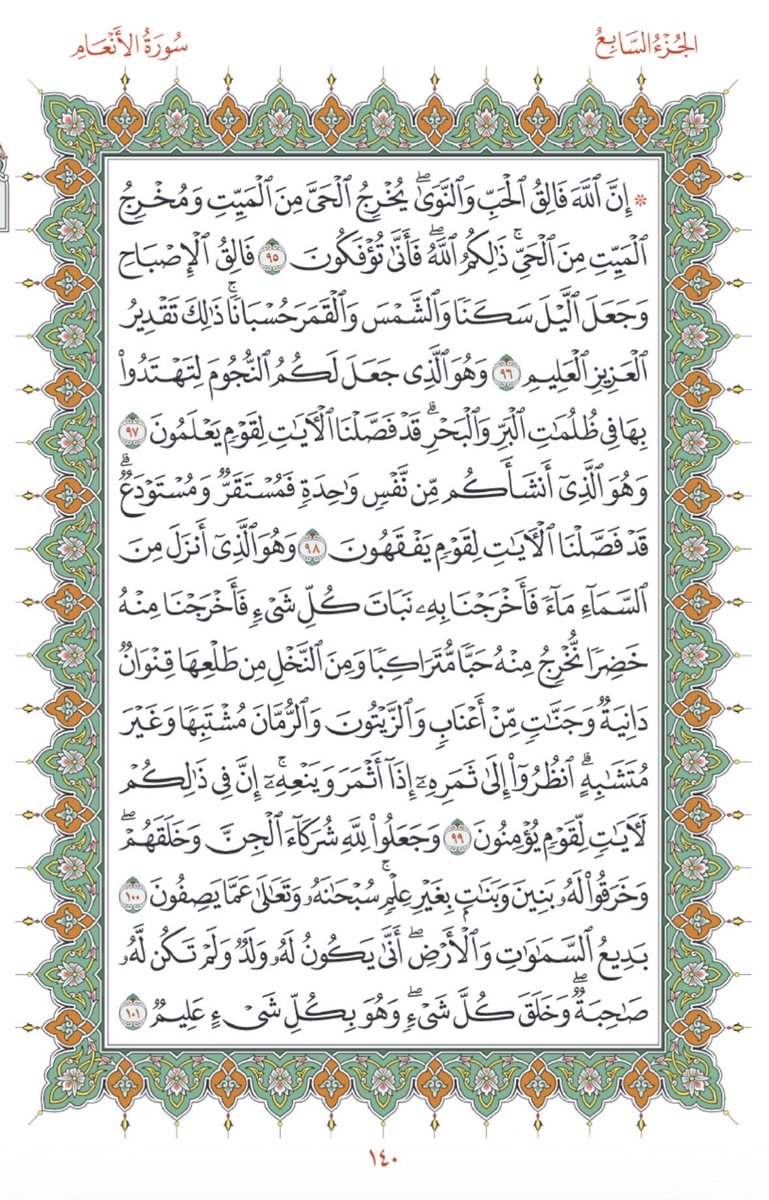 الجُزْءُ السَّابِعُ
سُورَةُ الأَنْعَامِ
۞ إِنَّ ٱللَّهَ فَالِقُ ٱلْحَبِّ وَٱلنَّوَىٰۖ يُخْرِجُ ٱلْحَىَّ مِنَ ٱلْمَيِّتِ وَمُخْرِجُ
ٱلْمَيِّتِ مِنَ ٱلْحَىِّۚ ذَٰلِكُمُ ٱللَّهُۖ فَأَنَّىٰ تُؤْفَكُونَ ٩٥ فَالِقُ ٱلْإِصْبَاحِ
وَجَعَلَ ٱلَّيْلَ سَكَنًا وَٱلشَّمْسَ وَٱلْقَمَرَ حُسْبَانًاۚ ذَٰلِكَ تَقْدِيرُ
ٱلْعَزِيزِ ٱلْعَلِيمِ ٩٦ وَهُوَ ٱلَّذِى جَعَلَ لَكُمُ ٱلنُّجُومَ لِتَهْتَدُوا۟
بِهَا فِى ظُلُمَٰتِ ٱلْبَرِّ وَٱلْبَحْرِۗ قَدْ فَصَّلْنَا ٱلْءَايَٰتِ لِقَوْمٍ يَعْلَمُونَ ٩٧
وَهُوَ ٱلَّذِىٓ أَنشَأَكُم مِّن نَّفْسٍ وَٰحِدَةٍ فَمُسْتَقَرٌّ وَمُسْتَوْدَعٌۗ
قَدْ فَصَّلْنَا ٱلْءَايَٰتِ لِقَوْمٍ يَفْقَهُونَ ٩٨ وَهُوَ ٱلَّذِىٓ أَنزَلَ مِنَ
ٱلسَّمَآءِ مَآءً فَأَخْرَجْنَا بِهِۦ نَبَاتَ كُلِّ شَىْءٍ فَأَخْرَجْنَا مِنْهُ
خَضِرًا نُّخْرِجُ مِنْهُ حَبًّا مُّتَرَاكِبًا وَمِنَ ٱلنَّخْلِ مِن طَلْعِهَا قِنْوَانٌ
دَانِيَةٌ وَجَنَّٰتٍ مِّنْ أَعْنَابٍ وَٱلزَّيْتُونَ وَٱلرُّمَّانَ مُشْتَبِهًا وَغَيْرَ
مُتَشَٰبِهٍۗ ٱنظُرُوٓا۟ إِلَىٰ ثَمَرِهِۦٓ إِذَآ أَثْمَرَ وَيَنْعِهِۦٓۚ إِنَّ فِى ذَٰلِكُمْ
لَءَايَٰتٍ لِّقَوْمٍ يُؤْمِنُونَ ٩٩ وَجَعَلُوا۟ لِلَّهِ شُرَكَآءَ ٱلْجِنَّ وَخَلَقَهُمْۖ
وَخَرَقُوا۟ لَهُۥ بَنِينَ وَبَنَٰتٍۭ بِغَيْرِ عِلْمٍۚ سُبْحَٰنَهُۥ وَتَعَٰلَىٰ عَمَّا يَصِفُونَ ١٠٠
بَدِيعُ ٱلسَّمَٰوَٰتِ وَٱلْأَرْضِۖ أَنَّىٰ يَكُونُ لَهُۥ وَلَدٌ وَلَمْ تَكُن لَّهُۥ
صَٰحِبَةٌۖ وَخَلَقَ كُلَّ شَىْءٍۖ وَهُوَ بِكُلِّ شَىْءٍ عَلِيمٌ ١٠١
١٤٠